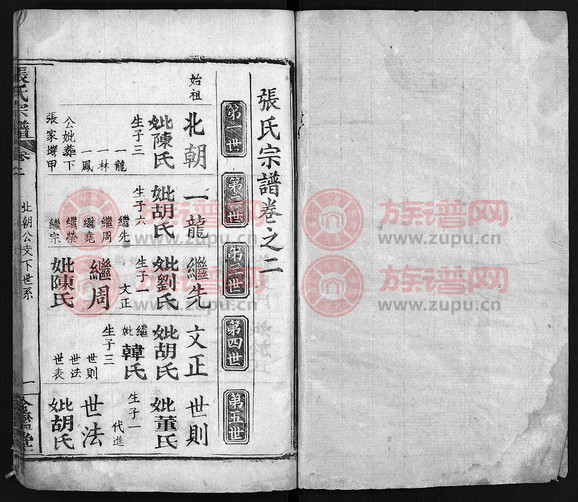 張氏宗譜卷之二
第一世
始祖
北朝
妣陳氏
生子三
一龍
一林
一鳳
公妣葬下
張家塆甲
第二世
一龍
妣胡氏
生子六
繼先
繼周
繼堯
繼榮
繼宗
第三世
繼先
妣劉氏
生子一
文正
繼周
妣陳氏
第四世
文正
妣胡氏
繼妣韓氏
生子三
世則
世法
世表
第五世
世則
妣董氏
生子一
代進
世法
妣胡氏
張氏宗譜
卷之二
北朝公支下世系
一
族谱网
www.zupu.cn
族谱网
www.zupu.cn
族谱网
www.zupu.cn
族谱网
www.zupu.cn